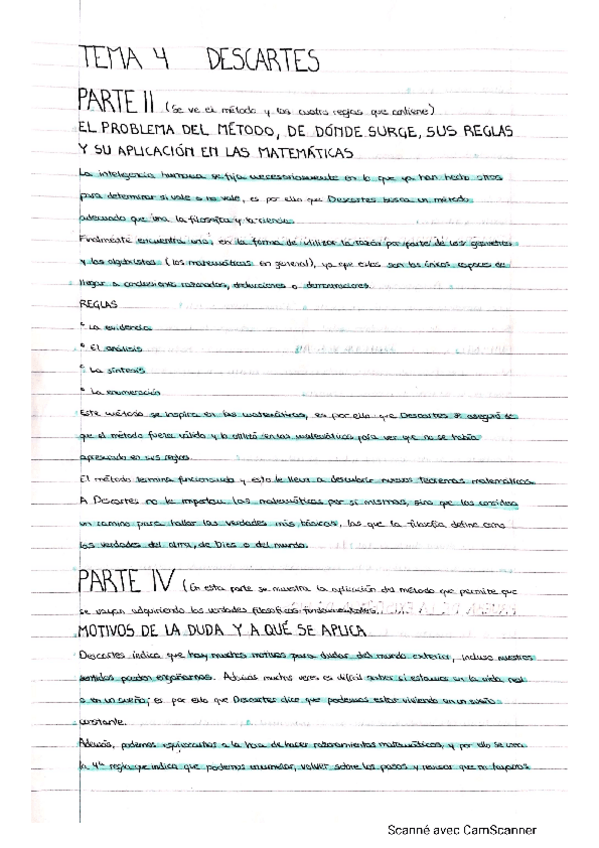 TEMA 4 DESCARTES
PARTE II (Se ve el método y las cuatro reglas que contiene)
EL PROBLEMA DEL MÉTODO, DE DÓNDE SURGE, SUS REGLAS
Y SU APLICACIÓN EN LAS MATEMÁTICAS
La inteligencia humana se fija necesariamente en lo que ya han hecho otros
para determinar si vale o no vale, es por ello que Descartes busca un método
adecuado que una la filosofía y la ciencia.
Finalmente encuentra uno, en la forma de utilizar la razón por parte de los geómetras
y los algebristas (los matemáticos en general), ya que estos son los únicos capaces de
llegar a conclusiones razonadas, deducciones o demostraciones.
REGLAS
° La evidencia
° El análisis
° La síntesis
° La enumeración
Este método se inspira en las matemáticas, es por ello que Descartes se aseguró de
que el método fuera válido y lo utilizó en las matemáticas para ver que no se había
en sus reglas.
El método termina funcionando y esto le lleva a descubrir nuevos teoremas matemáticos.
A Descartes no le importan las matemáticas por sí mismas, sino que las considera
un camino para hallar las verdades más básicas, las que la filosofía define como
las verdades del alma, de Dios o del mundo.
PARTE IV (En esta parte se muestra la aplicación del método que permite que
se vayan adquiriendo las verdades filosóficas fundamentales)
MOTIVOS DE LA DUDA Y A QUÉ SE APLICA
Descartes indica que hay muchos motivos para dudar del mundo exterior, incluso nuestros
sentidos pueden engañarnos. Además muchas veces es difícil saber si estamos en la vida real
o en un sueño, es por ello que Descartes dice que podemos estar viviendo en un sueño
constante.
Además, podemos equivocarnos a la hora de hacer razonamientos matemáticos, y por ello se crea
la 4ª regla que indica que podemos enumerar, volver sobre los pasos y revisar que no hayamos
Scanné avec CamScanner